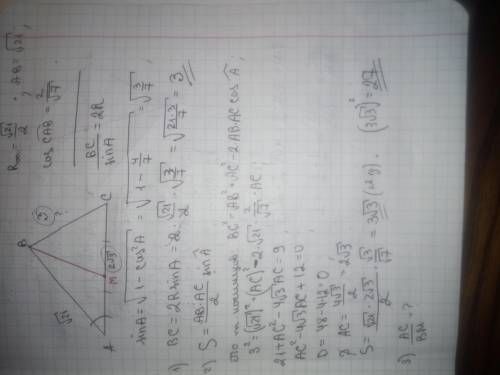 Rоп = √21/2 ; AB = √21 ;
cos CAB = 2/√7
B
√21
3 ?
A
M
(2√3)
C
BC/sinA = 2R
sinA = √(1 - cos²A) = √(1 - 4/7) = √(3/7) ;
1) BC = 2R sinA = 2 · √21/2 · √(3/7) = √(21·3/7) = 3
2) S = AB·AC/2 sin A
BC² = AB² + AC² - 2AB·AC cos A ,
3² = (√21)² + (AC)² - 2·√21 · 2/√7 · AC ;
21 + AC² - 4√3 AC = 9 ,
AC² - 4√3 AC + 12 = 0 ,
D = 48 - 4·12 = 0
AC = 4√3/2 = 2√3
S = √21 · 2√3/2 · √3/√7 = 3√3 (ед) . (3√3)² = 27
3) AC/BM = ?